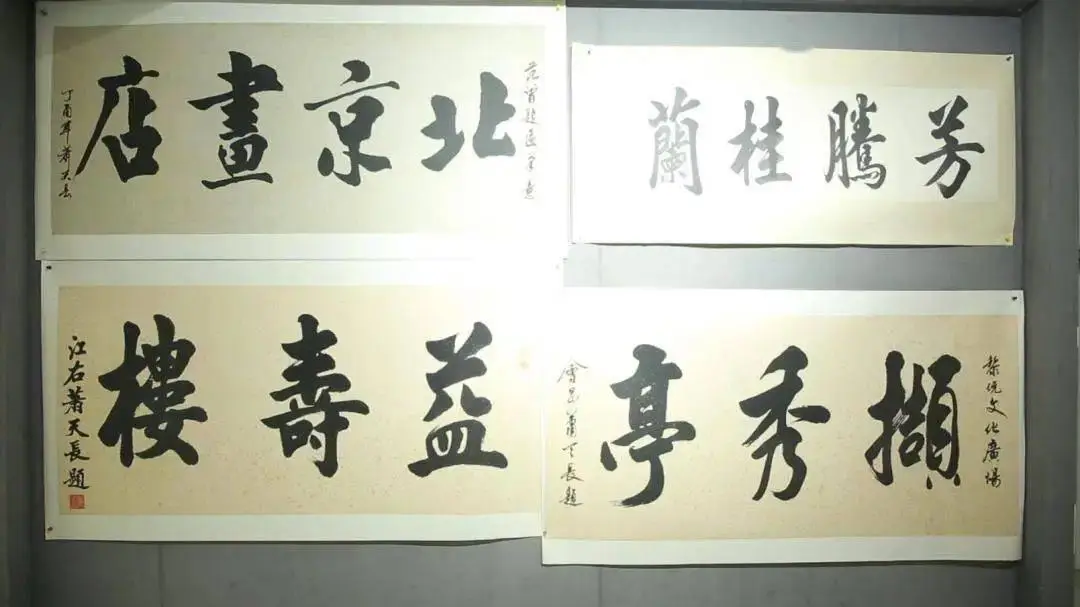 北京畫店
丁酉年蕭天長
芳騰桂蘭
益壽樓
江右蕭天長題
文化廣場
擷秀亭
會昌蕭天長題